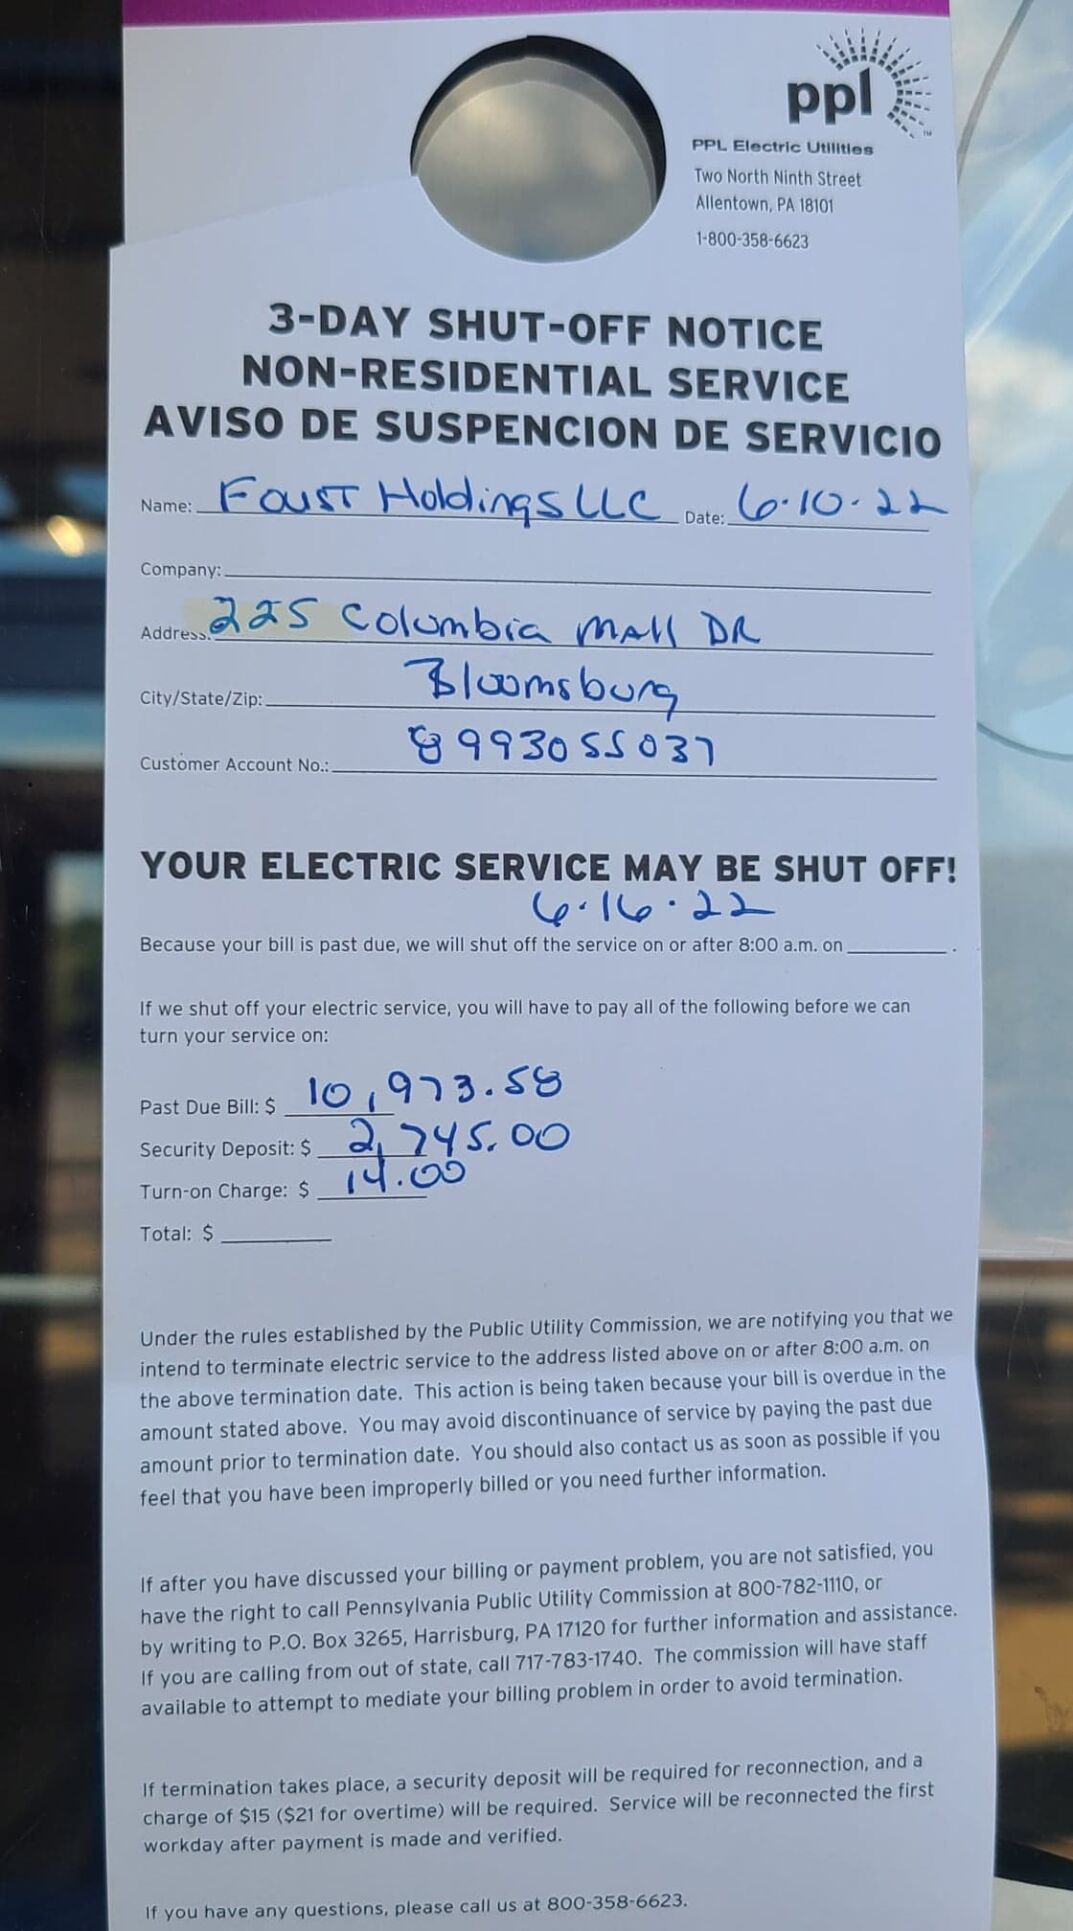 ppl
PPL Electric Utilities
Two North Ninth Street
Allentown, PA 18101
1-800-358-6623
3-DAY SHUT-OFF NOTICE
NON-RESIDENTIAL SERVICE
AVISO DE SUSPENCION DE SERVICIO
Name: Foust Holdings LLC Date: 6·10·22
Company:
Address: 225 Columbia Mall DR
City/State/Zip: Bloomsburg
Customer Account No.: 8993055037
YOUR ELECTRIC SERVICE MAY BE SHUT OFF!
6·16·22
Because your bill is past due, we will shut off the service on or after 8:00 a.m. on ________.
If we shut off your electric service, you will have to pay all of the following before we can
turn your service on:
Past Due Bill: $ 10,973.58
Security Deposit: $ 2,745.00
Turn-on Charge: $ 14.00
Total: $
Under the rules established by the Public Utility Commission, we are notifying you that we
intend to terminate electric service to the address listed above on or after 8:00 a.m. on
the above termination date. This action is being taken because your bill is overdue in the
amount stated above. You may avoid discontinuance of service by paying the past due
amount prior to termination date. You should also contact us as soon as possible if you
feel that you have been improperly billed or you need further information.
If after you have discussed your billing or payment problem, you are not satisfied, you
have the right to call Pennsylvania Public Utility Commission at 800-782-1110, or
by writing to P.O. Box 3265, Harrisburg, PA 17120 for further information and assistance.
If you are calling from out of state, call 717-783-1740. The commission will have staff
available to attempt to mediate your billing problem in order to avoid termination.
If termination takes place, a security deposit will be required for reconnection, and a
charge of $15 ($21 for overtime) will be required. Service will be reconnected the first
workday after payment is made and verified.
If you have any questions, please call us at 800-358-6623.